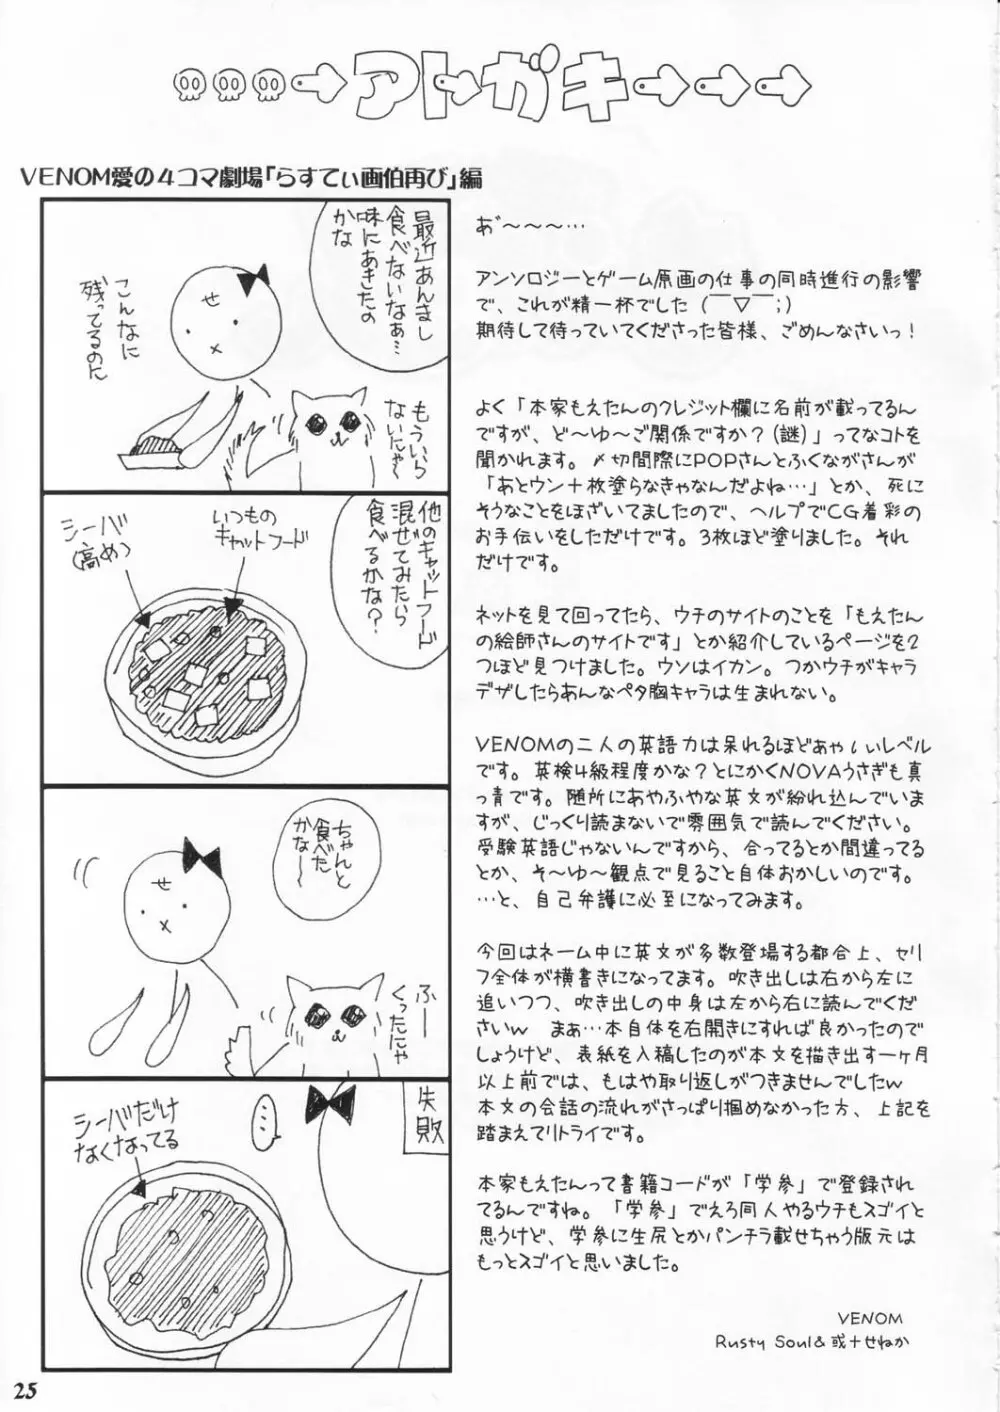 アトガキ
VENOM愛の4コマ劇場「らすてぃ画伯再び」編
最近あんまし
食べないなぁ…
味にあきたの
かな
せ
こんなに
残ってるのに
もういら
ないにゃ〜
他のキャットフード
混ぜてみたら
食べるかな?
いつもの
キャットフード
シーバ
(高め)
ちゃんと
食べた
かな〜
せ
ふー
くったにゃ
失敗
…
シーバだけ
なくなってる
あ゛〜〜〜〜…
アンソロジーとゲーム原画の仕事の同時進行の影響
で、これが精一杯でした(￣▽￣;)
期待して待っていてくださった皆様、ごめんなさいっ!
よく「本家もえたんのクレジット欄に名前が載ってるん
ですが、ど〜ゆ〜ご関係ですか?(謎)」ってなコトを
聞かれます。〆切間際にPOPさんとふくながさんが
「あとウン十枚塗らなきゃなんだよね…」とか、死に
そうなことをほざいてましたので、ヘルプでCG着彩の
お手伝いをしただけです。3枚ほど塗りました。それ
だけです。
ネットを見て回ってたら、ウチのサイトのことを「もえたん
の絵師さんのサイトです」とか紹介しているページを2
つほど見つけました。ウソはイカン。つかウチがキャラ
デザしたらあんなペタ胸キャラは生まれない。
VENOMの二人の英語力は呆れるほどあゃιぃレベル
です。英検4級程度かな?とにかくNOVAうさぎも真
っ青です。随所にあやふやな英文が紛れ込んでいま
すが、じっくり読まないで雰囲気で読んでください。
受験英語じゃないんですから、合ってるとか間違ってる
とか、そ〜ゆ〜観点で見ること自体おかしいのです。
…と、自己弁護に必至になってみます。
今回はネーム中に英文が多数登場する都合上、セリ
フ全体が横書きになってます。吹き出しは右から左に
追いつつ、吹き出しの中身は左から右に読んでくだ
さいw　まぁ…本自体を右開きにすれば良かったので
しょうけど、表紙を入稿したのが本文を描き出す一ヶ月
以上前では、もはや取り返しがつきませんでしたw
本文の会話の流れがさっぱり掴めなかった方、上記を
踏まえてリトライです。
本家もえたんって書籍コードが「学参」で登録され
てるんですね。「学参」でえろ同人やるウチもスゴイと
思うけど、学参に生尻とかパンチラ載せちゃう版元は
もっとスゴイと思いました。
VENOM
Rusty Soul&或十せねか
25